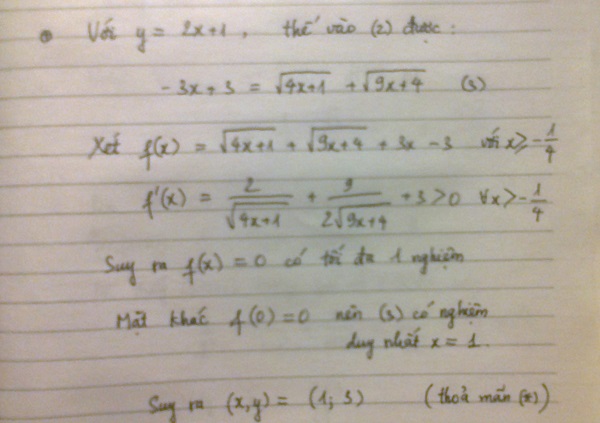 Với y = 2x+1, thế vào (2) được:
-3x + 3 = √(4x+1) + √(9x+4) (3)
Xét f(x) = √(4x+1) + √(9x+4) + 3x - 3 với x ≥ -1/4
f'(x) = 2/√(4x+1) + 9/(2√(9x+4)) + 3 > 0 ∀x > -1/4
Suy ra f(x) = 0 có tối đa 1 nghiệm
Mặt khác f(0) = 0 nên (3) có nghiệm
duy nhất x = 1.
Suy ra (x,y) = (1; 3) (thoả mãn (*))